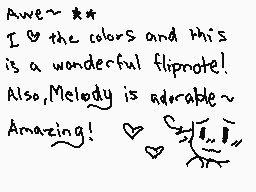 Awe~ **
I ♡ the colors and this
is a wonderful flipnote!
Also, Melody is adorable~
Amazing!